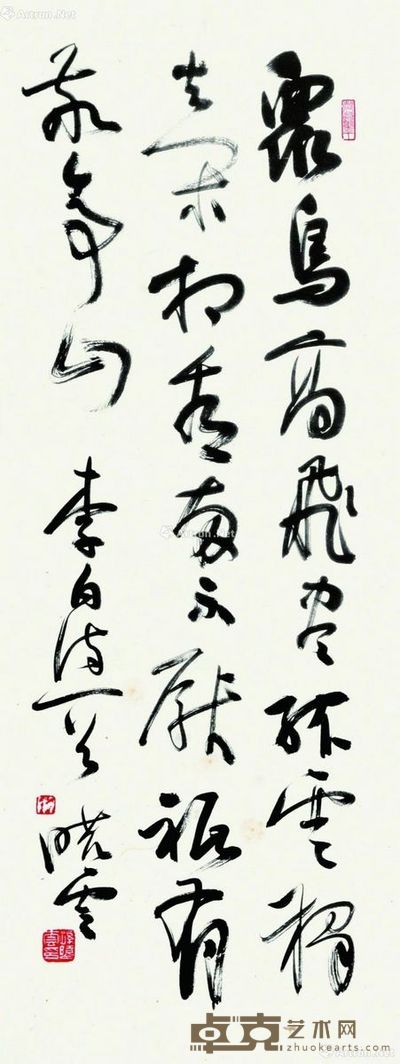 眾鳥高飛盡孤雲獨
去閑相看兩不厭祗有
敬亭山 李白詩一首 曉雲
卓克艺术网
zhuokearts.com
Artron.Net